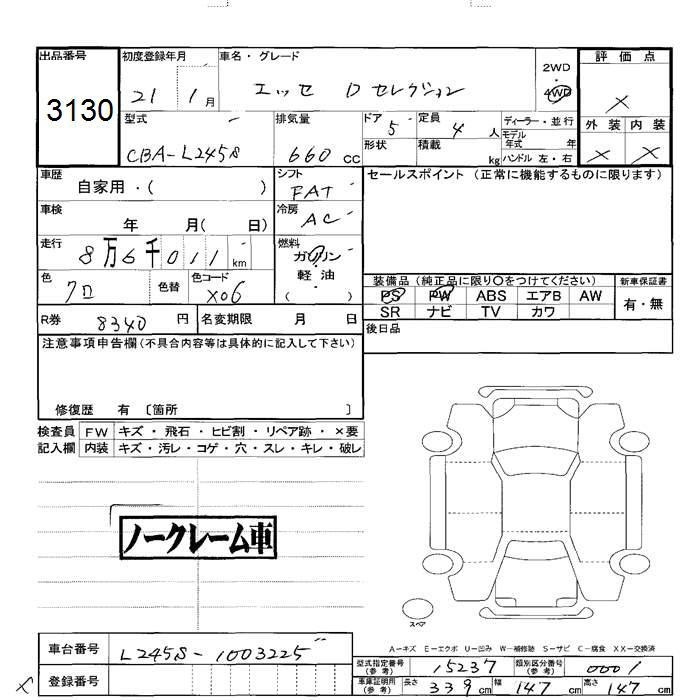 出品番号 初度登録年月 車名・グレード 2WD 評価点
3130 21 1月 エッセ Dセレクション ・ 4WD ×
型式 排気量 ドア 5 定員 4人 ディーラー・並行 外装 内装
CBA-L245S 660 CC 形状 積載 kg モデル年式 年 × ×
ハンドル 左・右
車歴 自家用・( ) シフト FAT セールスポイント(正常に機能するものに限ります)
車検 年 月( 日) 冷房 AC
走行 8万6千011km 燃料 ガソリン・軽油 ( )
色 クロ 色替 色コード X06 装備品(純正品に限り〇をつけてください) 新車保証書
PS PW ABS エアB AW 有・無
SR ナビ TV カワ
R券 8340円 名変期限 月 日 後日品
注意事項申告欄(不具合内容等は具体的に記入して下さい)
修復歴 有 〔箇所 〕
検査員 FW キズ・飛石・ヒビ割・リペア跡・×要
記入欄 内装 キズ・汚レ・コゲ・穴・スレ・キレ・破レ
ノークレーム車
スペア
A-キズ E-エクボ U-凹み W-補修跡 S-サビ C-腐食 XX-交換済
車台番号 L245S-1003225 型式指定番号(参考) 15237 類別区分番号(参考) 0001
× 登録番号 車庫証明用(参考) 長さ 339cm 幅 147cm 高さ 147cm